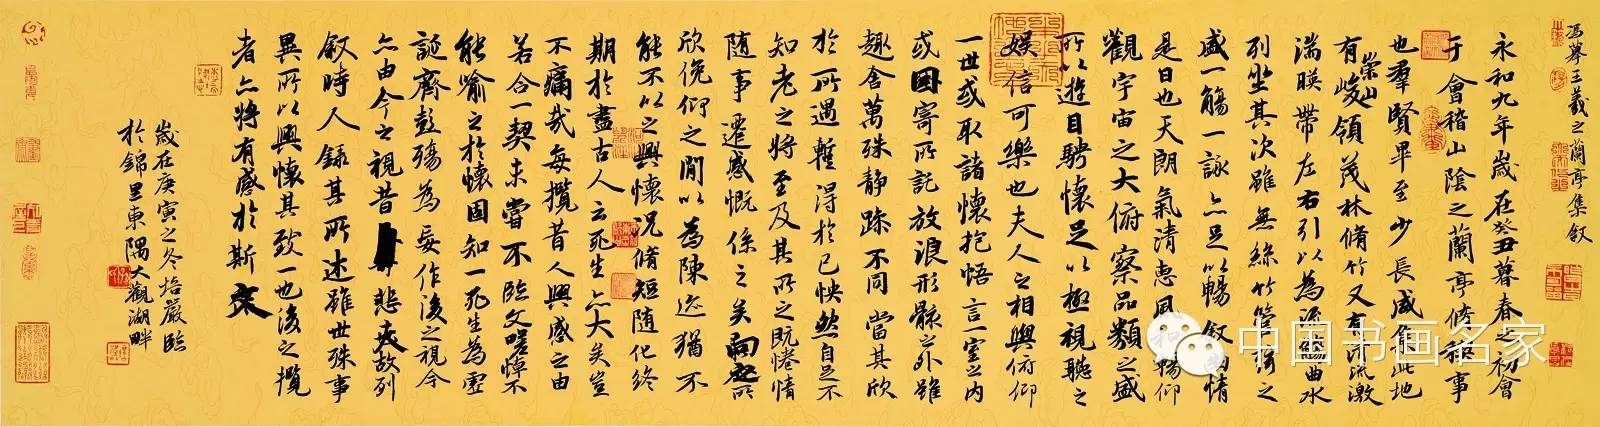 馮摹王羲之蘭亭集敘
永和九年歲在癸丑暮春之初會
于會稽山陰之蘭亭脩禊事
也羣賢畢至少長咸集此地
有崇山峻領茂林脩竹又有清流激
湍暎帶左右引以為流觴曲水
列坐其次雖無絲竹管弦之
盛一觴一詠亦足以暢敘幽情
是日也天朗氣清惠風和暢仰
觀宇宙之大俯察品類之盛
所以遊目騁懷足以極視聽之
娛信可樂也夫人之相與俯仰
一世或取諸懷抱悟言一室之內
或因寄所託放浪形骸之外雖
趣舍萬殊静躁不同當其欣
於所遇暫得於己怏然自足不
知老之將至及其所之既惓情
隨事遷感慨係之矣向之所
欣俛仰之閒以為陳迹猶不
能不以之興懷況脩短隨化終
期於盡古人云死生亦大矣豈
不痛哉每攬昔人興感之由
若合一契未嘗不臨文嗟悼不
能喻之於懷固知一死生為虛
誕齊彭殤為妄作後之視今
亦由今之視昔悲夫故列
敘時人錄其所述雖世殊事
異所以興懷其致一也後之攬
者亦將有感於斯文
歲在庚寅之冬培嚴臨
於錦里東隅大觀湖畔
中国书画名家